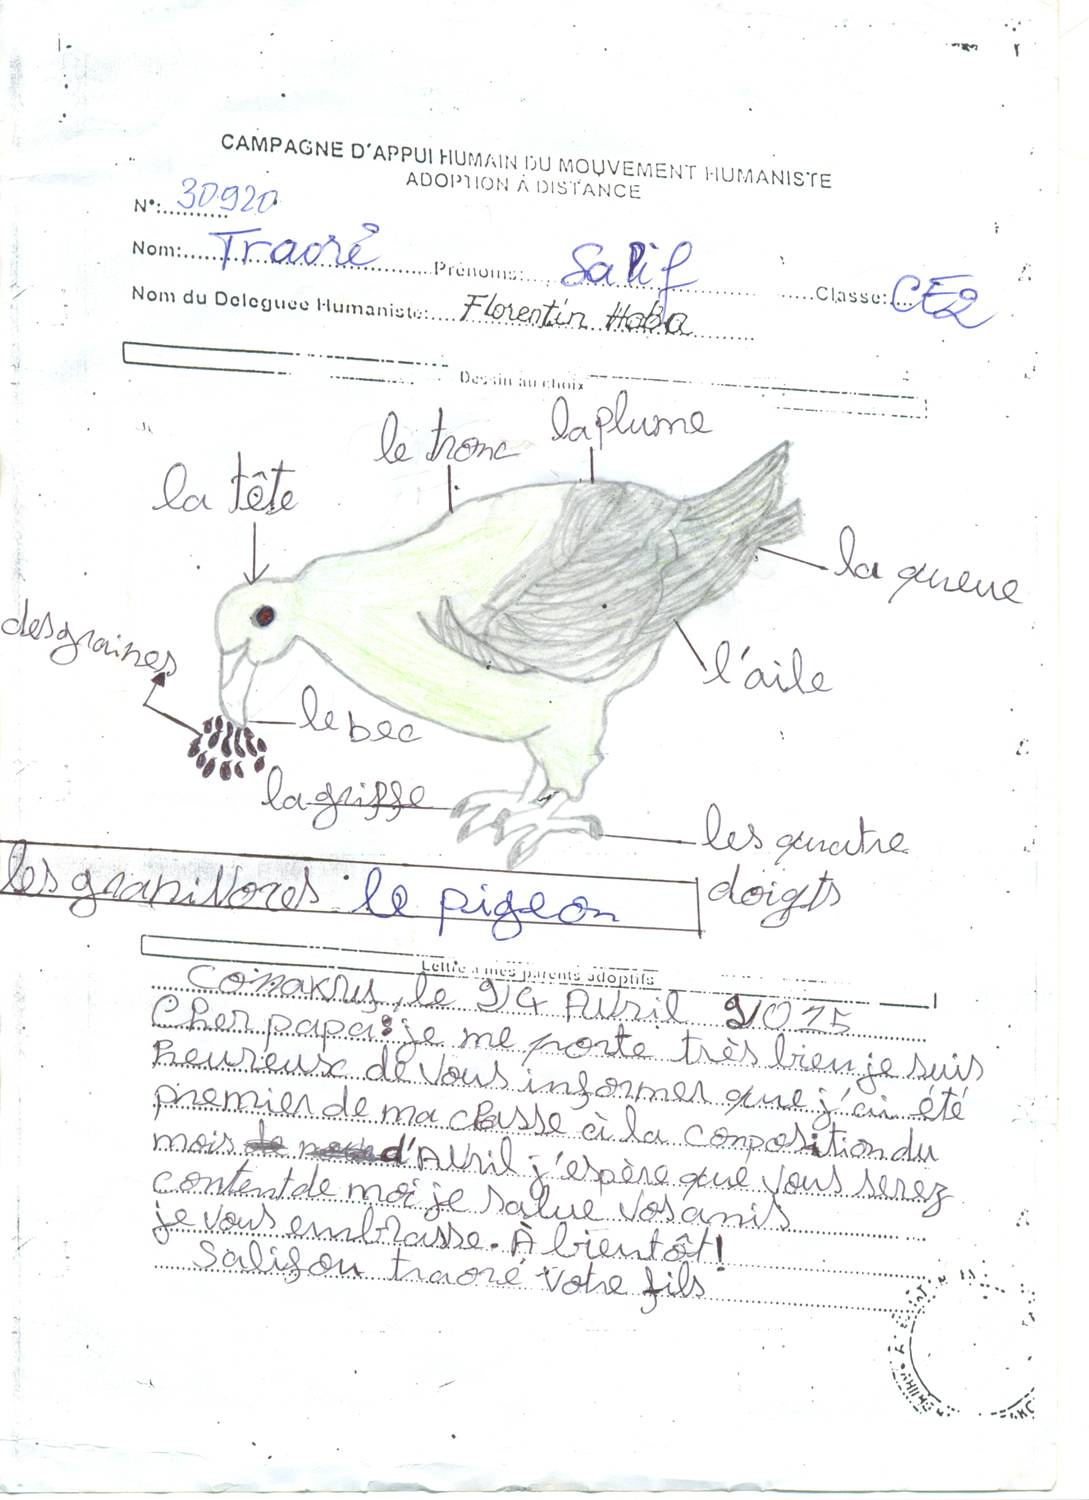 CAMPAGNE D'APPUI HUMAIN DU MOUVEMENT HUMANISTE
ADOPTION À DISTANCE
N°: 30920
Nom: Traoré Prénoms: Salif Classe: CE2
Nom du Deleguée Humaniste: Florentin Haba
Dessin au choix
le tronc la plume
la tête
la queue
des graines
l'aile
le bec
la griffe
les quatre
doigts
les granivores : le pigeon
Lettre a mes parents adoptifs
Conakry, le 24 Avril 2015
Cher papa : je me porte très bien je suis
heureux de vous informer que j'ai été
premier de ma classe à la conposition du
mois d'Avril j'espère que vous serez
content de moi je salue vos amis
je vous embrasse. À bientôt!
Salifou traoré votre fils